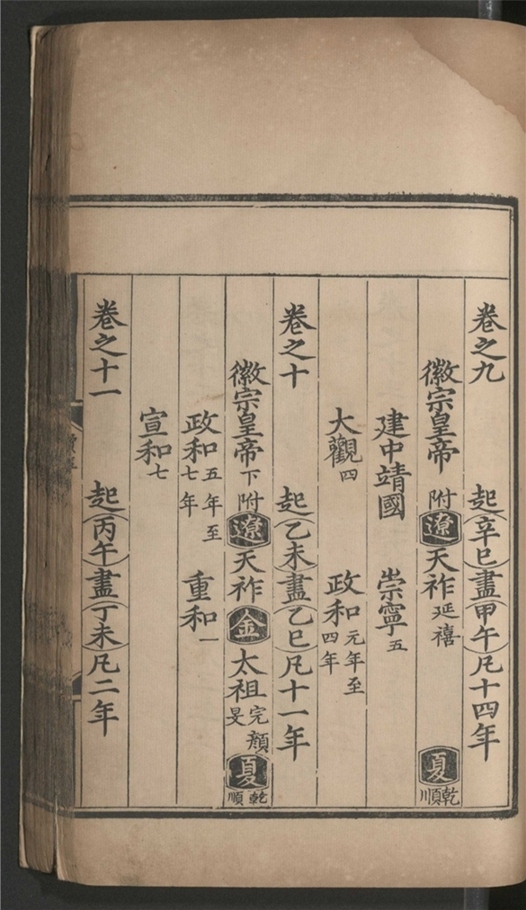 卷之九 起辛巳盡甲午凡十四年
徽宗皇帝 附遼天祚延禧 夏乾順
建中靖國 崇寧五
大觀四 政和元年至四年
卷之十 起乙未盡乙巳凡十一年
徽宗皇帝下 附遼天祚 金太祖完顏旻 夏乾順
政和五年至七年 重和一
宣和七
卷之十一 起丙午盡丁未凡二年